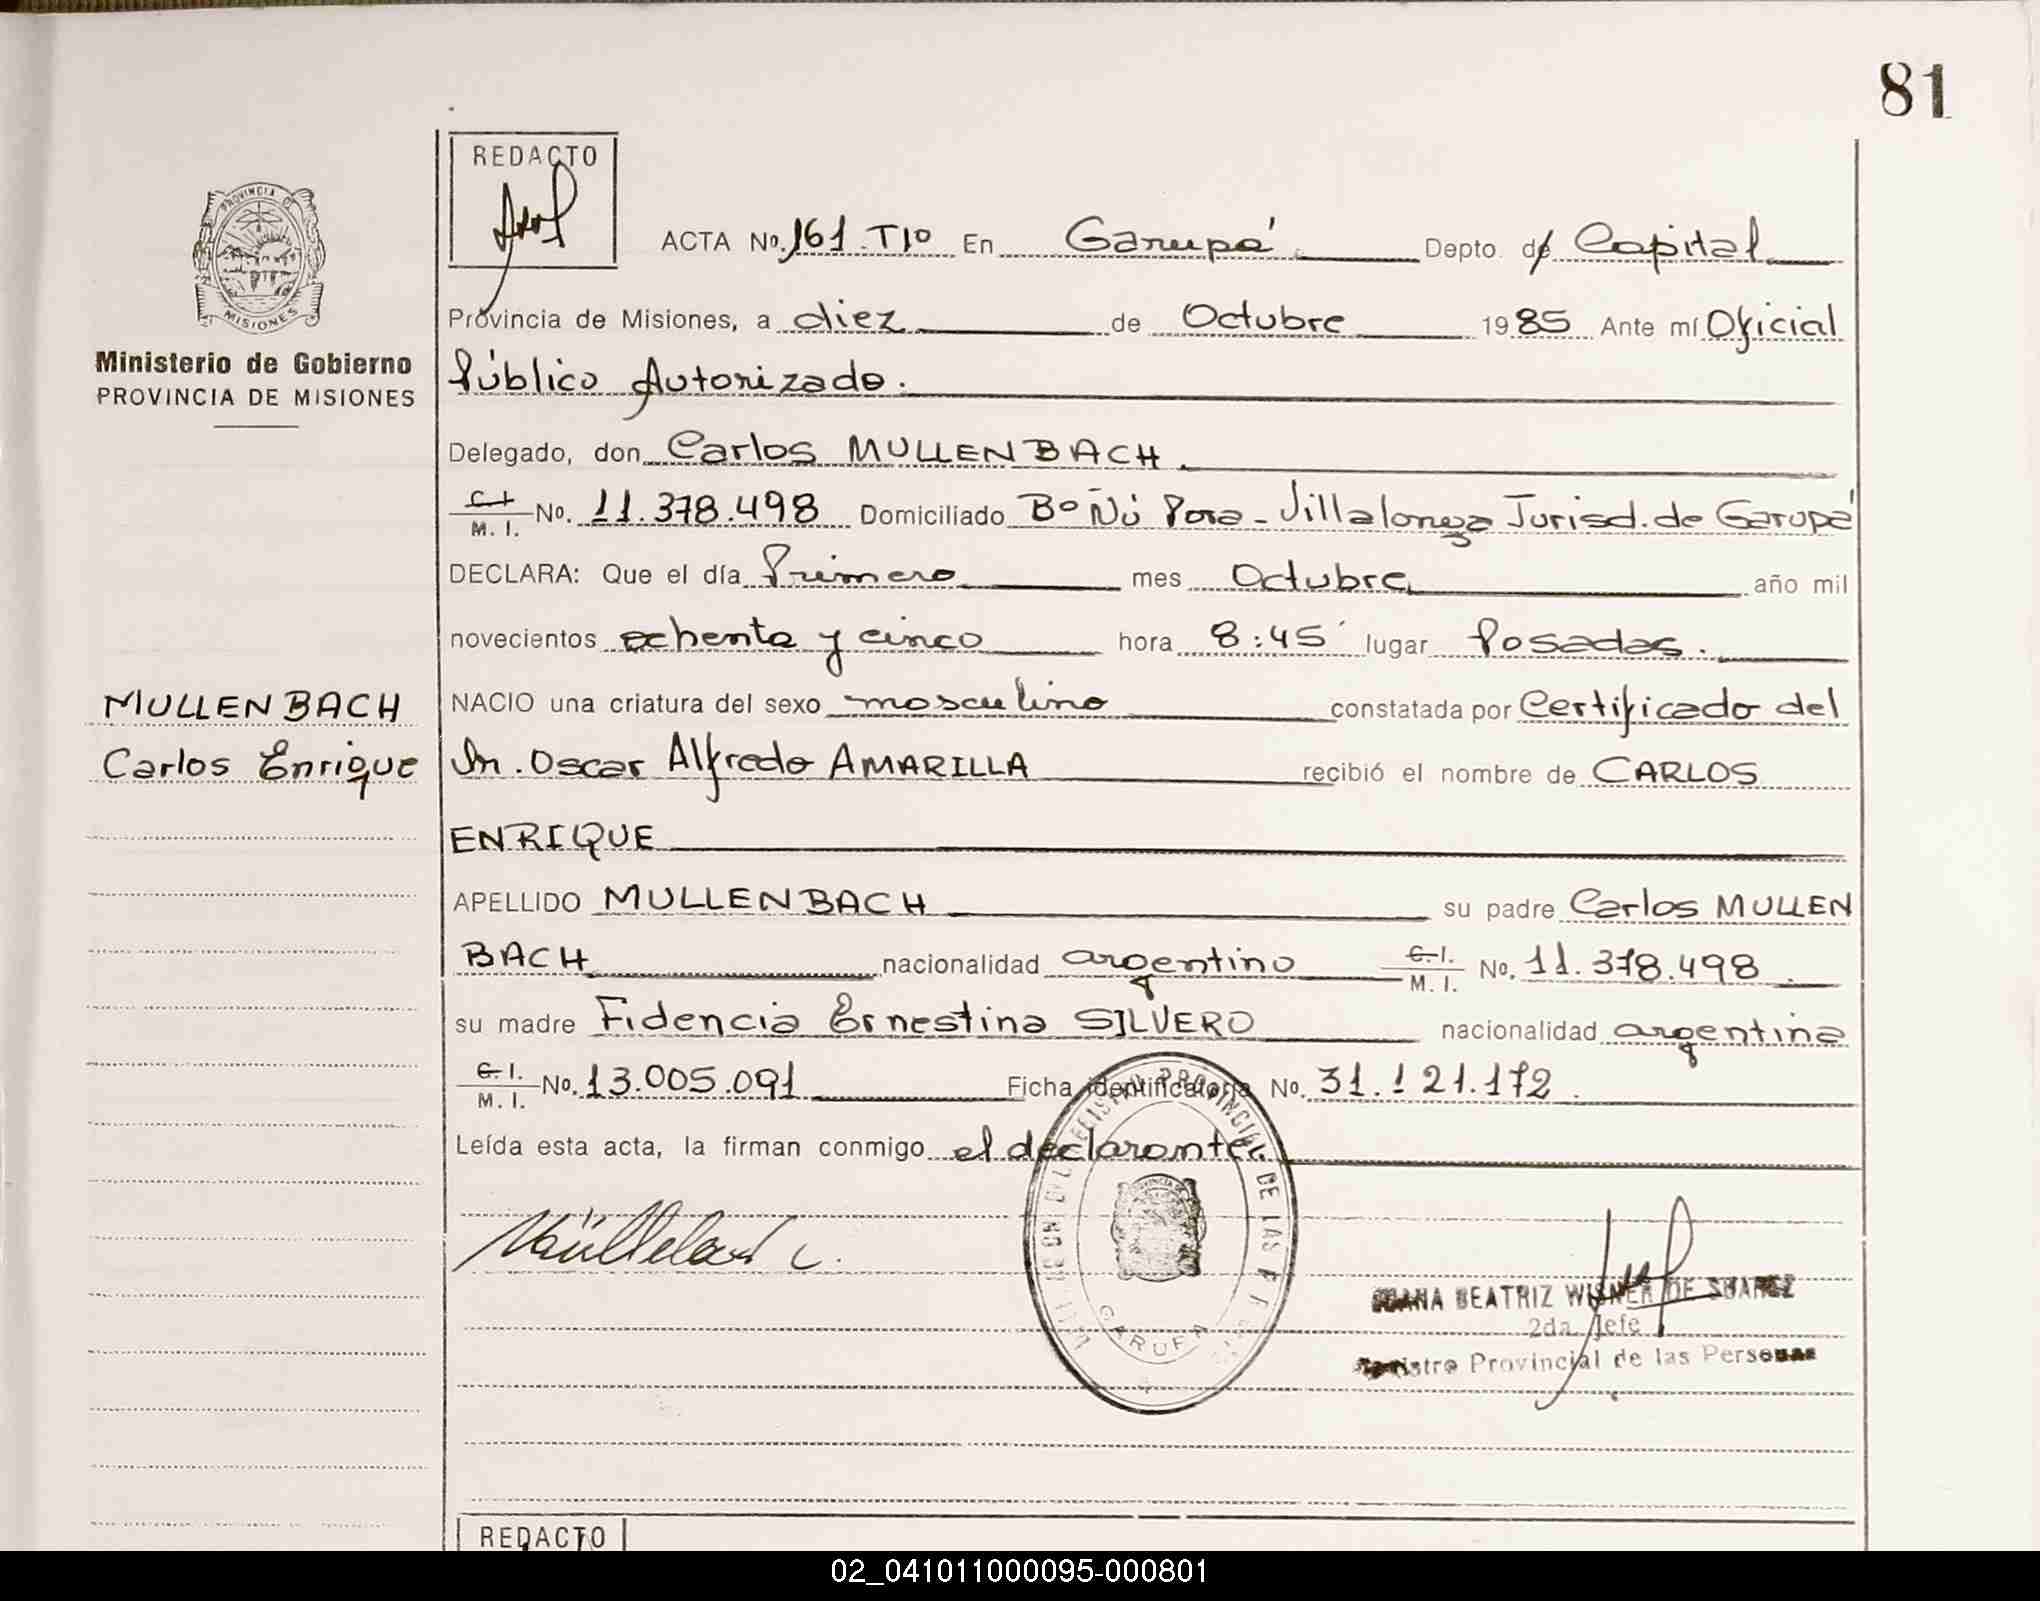 81
REDACTO
ACTA No. 161 TIO En Garupá Depto. de Capital
PROVINCIA DE
MISIONES
Provincia de Misiones, a diez de Octubre 1985 Ante mí Oficial
Ministerio de Gobierno
PROVINCIA DE MISIONES
Público Autorizado.
Delegado, don Carlos MULLENBACH
C.I. M.I. No. 11.378.498 Domiciliado Bº Ñú Pora - Villalonga Jurisd. de Garupá
DECLARA: Que el día Primero mes Octubre año mil
novecientos ochenta y cinco hora 8:45 lugar Posadas.
NACIO una criatura del sexo masculino constatada por Certificado del
MULLENBACH
Carlos Enrique
Dr. Oscar Alfredo AMARILLA recibió el nombre de CARLOS
ENRIQUE
APELLIDO MULLENBACH su padre Carlos MULLEN
BACH nacionalidad argentino C.I. M.I. No. 11.378.498
su madre Fidencia Ernestina SILVERO nacionalidad argentina
C.I. M.I. No. 13.005.091 Ficha identificatoria No. 31.121.172
Leída esta acta, la firman conmigo el declarante.
PROVINCIAL DE LAS
GARUPA
JUANA BEATRIZ WISNER DE SUAREZ
2da. Jefe
Registro Provincial de las Personas
REDACTO
02_041011000095-000801